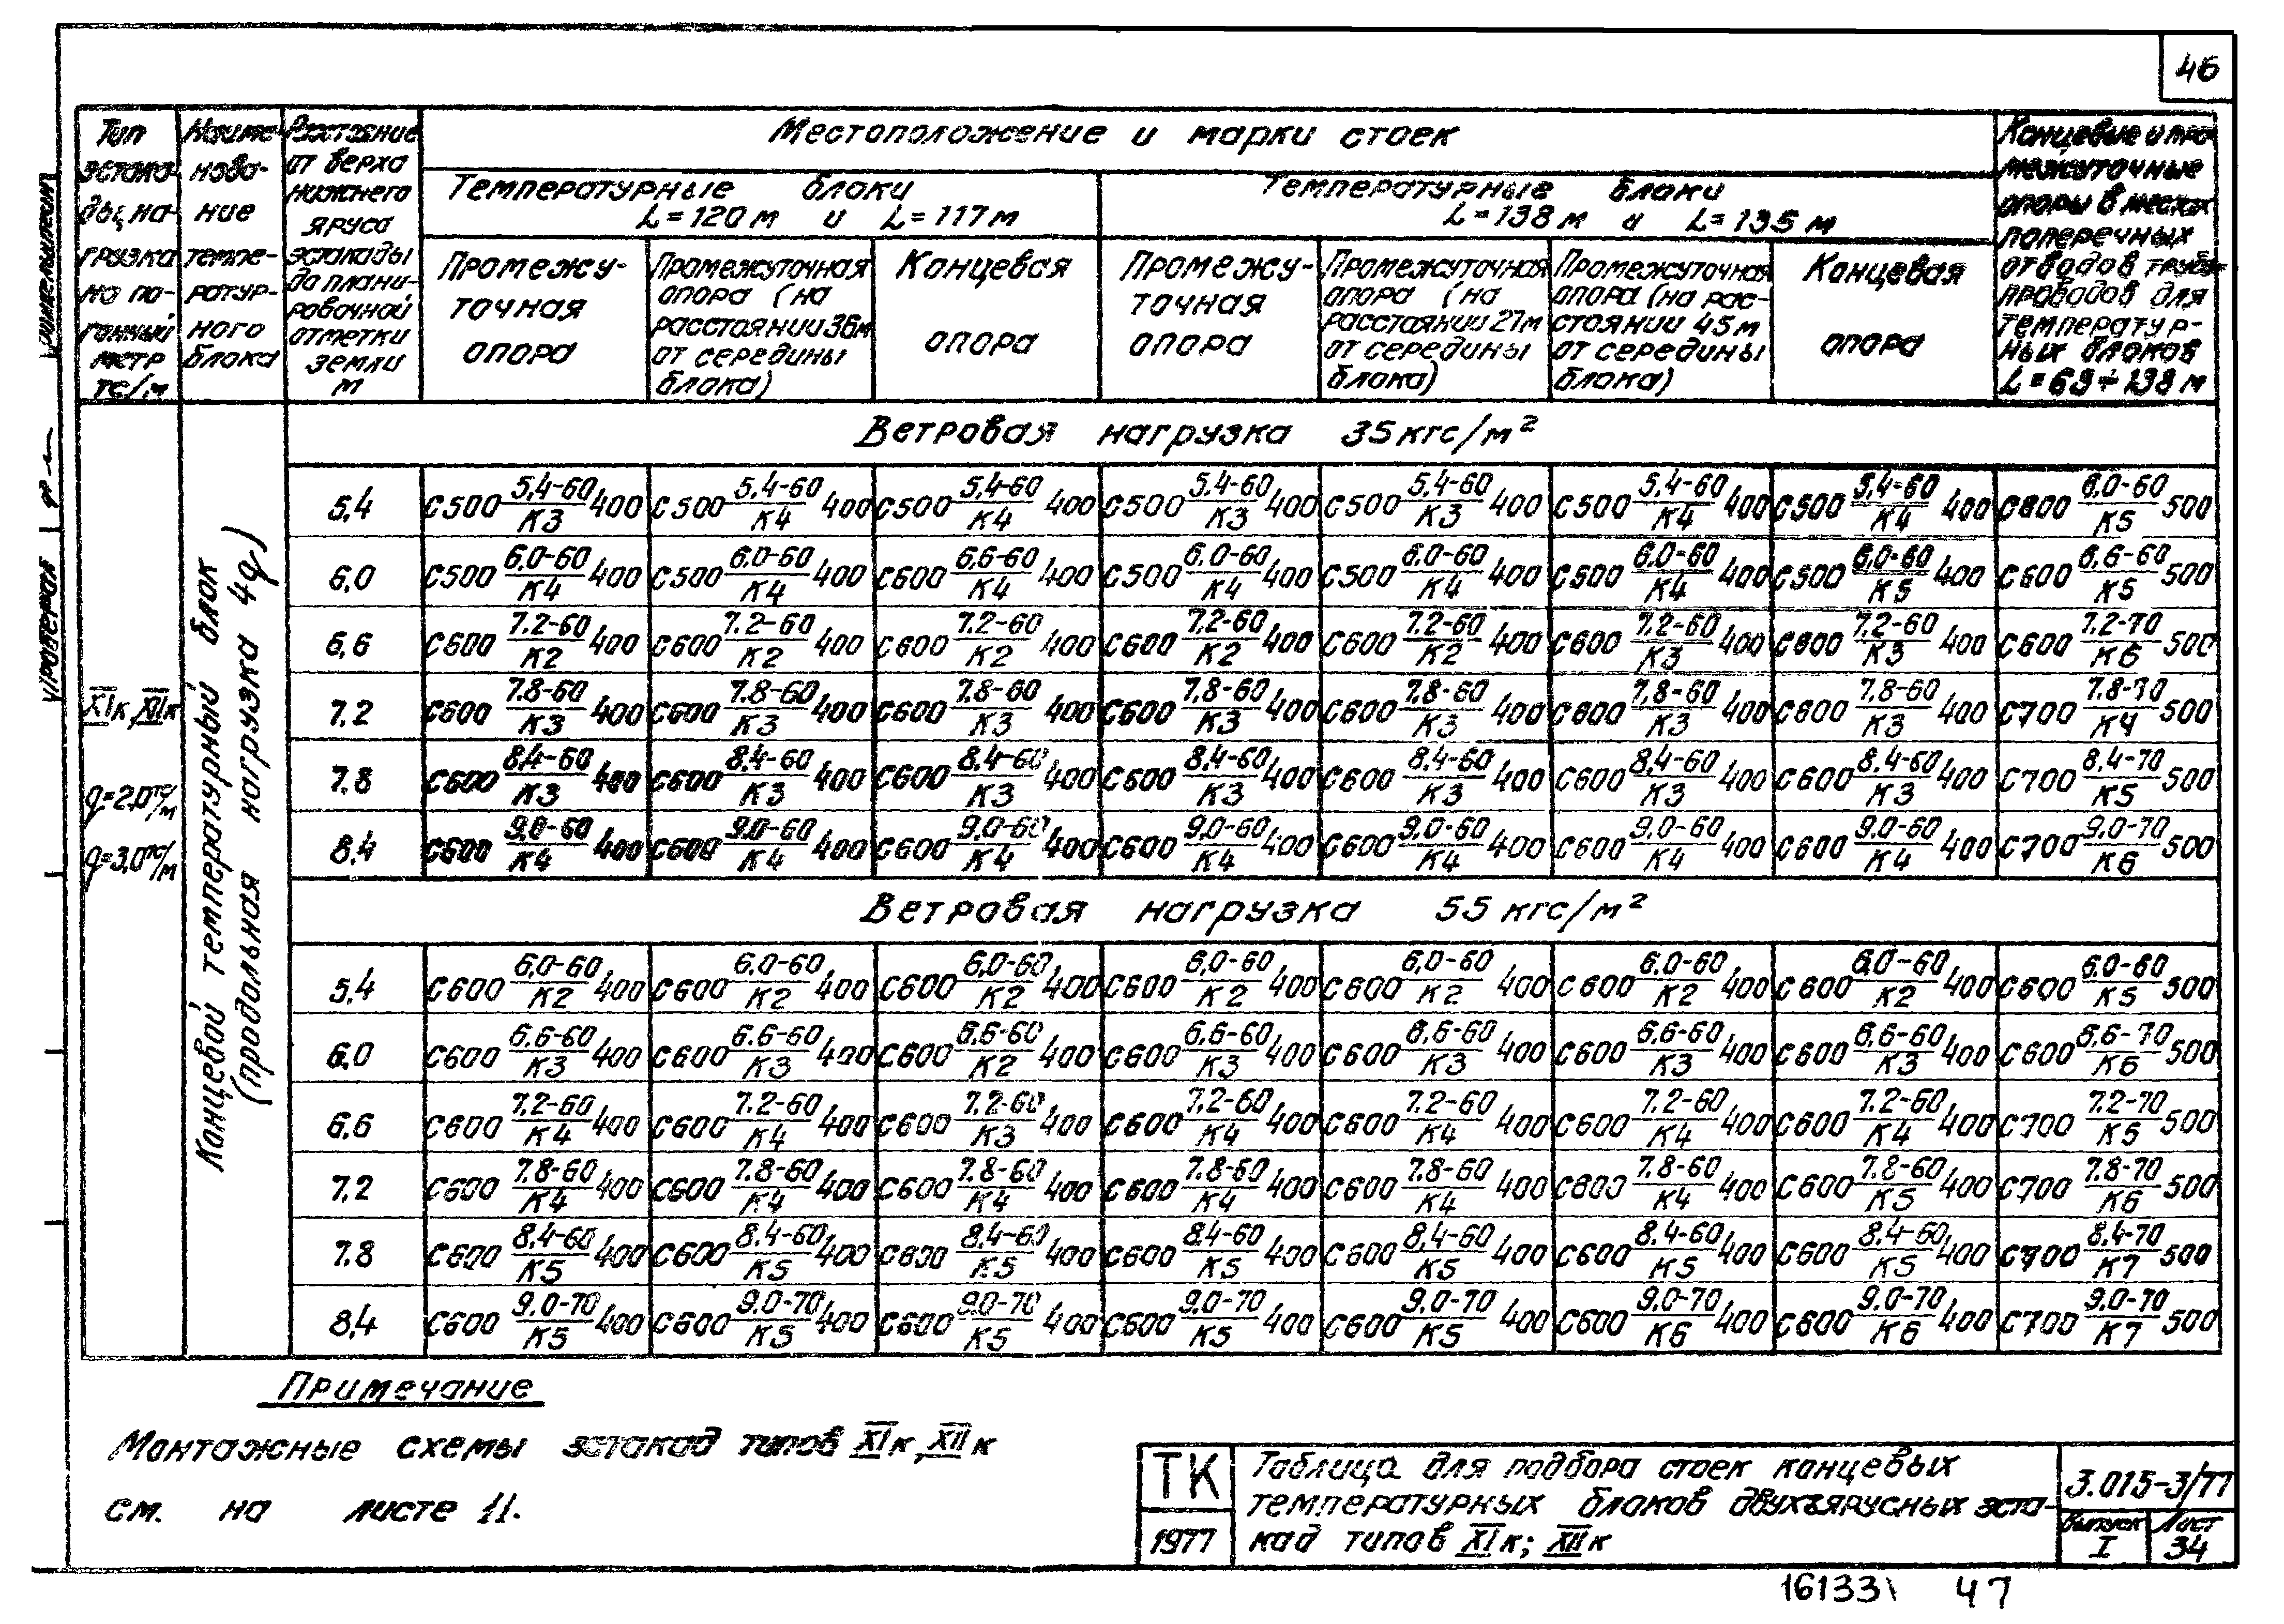 46
Местоположение и марки стоек
Тип эстака-ды, на-грузка на по-гонный метр тс/м
Наиме-нова-ние темпе-ратур-ного блока
Расстояние от верха нижнего яруса эстакады до плани-ровочной отметки земли м
Температурные блоки
L=120м и L=117м
Температурные блоки
L=138м и L=135м
Концевые и про-межуточные опоры в местах поперечных отводов трубо-проводов для температур-ных блоков L=69÷138м
Промежу-точная опора
Промежуточная опора (на расстоянии 36м от середины блока)
Концевая опора
Промежу-точная опора
Промежуточная опора (на расстоянии 21м от середины блока)
Промежуточная опора (на рас-стоянии 45м от середины блока)
Концевая опора
XIк, XIIк
q=2,0тс/м
q=3,0тс/м
Концевой температурный блок
(продольная нагрузка 4q)
Ветровая нагрузка 35 кгс/м²
5,4 С500 5,4-60/К3 400 С500 5,4-60/К4 400 С500 5,4-60/К4 400 С500 5,4-60/К3 400 С500 5,4-60/К3 400 С500 5,4-60/К4 400 С500 5,4-60/К4 400 С600 6,0-60/К5 500
6,0 С500 6,0-60/К4 400 С500 6,0-60/К4 400 С600 6,6-60/К4 400 С500 6,0-60/К4 400 С500 6,0-60/К4 400 С500 6,0-60/К4 400 С500 6,0-60/К5 400 С600 6,6-60/К5 500
6,6 С600 7,2-60/К2 400 С600 7,2-60/К2 400 С600 7,2-60/К2 400 С600 7,2-60/К2 400 С600 7,2-60/К2 400 С600 7,2-60/К3 400 С600 7,2-60/К3 400 С600 7,2-70/К6 500
7,2 С600 7,8-60/К3 400 С600 7,8-60/К3 400 С600 7,8-60/К3 400 С600 7,8-60/К3 400 С600 7,8-60/К3 400 С600 7,8-60/К3 400 С600 7,8-60/К3 400 С700 7,8-70/К4 500
7,8 С600 8,4-60/К3 400 С600 8,4-60/К3 400 С600 8,4-60/К3 400 С600 8,4-60/К3 400 С600 8,4-60/К3 400 С600 8,4-60/К3 400 С600 8,4-60/К3 400 С700 8,4-70/К5 500
8,4 С600 9,0-60/К4 400 С600 9,0-60/К4 400 С600 9,0-60/К4 400 С600 9,0-60/К4 400 С600 9,0-60/К4 400 С600 9,0-60/К4 400 С600 9,0-60/К4 400 С700 9,0-70/К6 500
Ветровая нагрузка 55 кгс/м²
5,4 С600 6,0-60/К2 400 С600 6,0-60/К2 400 С600 6,0-60/К2 400 С600 6,0-60/К2 400 С600 6,0-60/К2 400 С600 6,0-60/К2 400 С600 6,0-60/К2 400 С600 6,0-60/К5 500
6,0 С600 6,6-60/К3 400 С600 6,6-60/К3 400 С600 6,6-60/К2 400 С600 6,6-60/К3 400 С600 6,6-60/К3 400 С600 6,6-60/К3 400 С600 6,6-60/К3 400 С600 6,6-70/К6 500
6,6 С600 7,2-60/К4 400 С600 7,2-60/К4 400 С600 7,2-60/К3 400 С600 7,2-60/К4 400 С600 7,2-60/К4 400 С600 7,2-60/К4 400 С600 7,2-60/К4 400 С700 7,2-70/К5 500
7,2 С600 7,8-60/К4 400 С600 7,8-60/К4 400 С600 7,8-60/К4 400 С600 7,8-60/К4 400 С600 7,8-60/К4 400 С600 7,8-60/К4 400 С600 7,8-60/К5 400 С700 7,8-70/К6 500
7,8 С600 8,4-60/К5 400 С600 8,4-60/К5 400 С600 8,4-60/К5 400 С600 8,4-60/К5 400 С600 8,4-60/К5 400 С600 8,4-60/К5 400 С600 8,4-60/К5 400 С700 8,4-70/К7 500
8,4 С600 9,0-70/К5 400 С600 9,0-70/К5 400 С600 9,0-70/К5 400 С600 9,0-70/К5 400 С600 9,0-70/К5 400 С600 9,0-70/К6 400 С600 9,0-70/К6 400 С700 9,0-70/К7 500
Примечание
Монтажные схемы эстакад типов XIк, XIIк
см. на листе 11.
ТК
1977
Таблица для подбора стоек концевых
температурных блоков двухъярусных эста-
кад типов XIк; XIIк
3.015-3/77
Выпуск I
Лист 34
16133 47
проверил